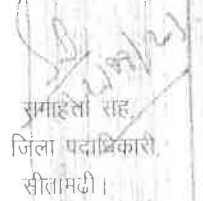 समाहर्ता सह,
जिला पदाधिकारी,
सीतामढ़ी।